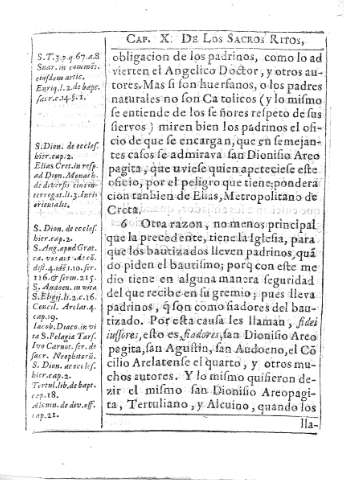 CAP. X. DE LOS SACROS RITOS,
obligacion de los padrinos, como lo ad
vierten el Angelico Doctor, y otros au-
tores. Mas si son huerfanos, o los padres
naturales no son Catolicos (y lo mismo
se entiende de los señores respeto de sus
siervos) miren bien los padrinos el ofi-
cio de que se encargan, que en semejan-
tes casos se admirava san Dionisio Areo
pagita, que uviese quien apeteciese este
oficio, por el peligro que tiene; pondera
cion tanbien de Elias, Metropolitano de
Creta.
6 Otra razon, no menos principal
que la precedente, tiene la Iglesia, para
que los bautizados lleven padrinos, quã
do piden el bautismo; porq̃ con este me
dio tiene en alguna manera seguridad
del que recibe en su gremio; pues lleva
padrinos, q̃ son como fiadores del bau-
tizado. Por esta causa les llaman, fidei
iussores, esto es fiadores, san Dionisio Areo
pagita, san Agustin, san Audoeno, el Cõ
cilio Arelatense el quarto, y otros mu-
chos autores. Y lo mismo quisieron de-
zir el mismo san Dionisio Areopagi-
ta, Tertuliano, y Alcuino, quando los
lla-
S. T. 3. p. q. 67. a. 8
Suar. in commẽt.
eiusdem artic.
Enriq. l. 2. de bapt.
S. Dion. de eccles.
hier. cap. 2.
Elias Cret. in resp.
ad Dion. Monach.
S. Dion. de eccles.
hier. cap. 2.
S. Aug. apud Grat.
116. & serm. 215.
S. Audoen. in vita
S. Eligij. li. 2. c. 16.
Concil. Arelat. 4.
cap. 19.
Iacob. Diaco. in vi
ta S. Pelagia Tars.
Ivo Carnot. ser. de
sacr. Neophitorũ.
S. Dion. de eccles.
hier. cap. 2.
Tertul. lib. de bapt.
cap. 18.
Alcuin. de div. off.
cap. 21.